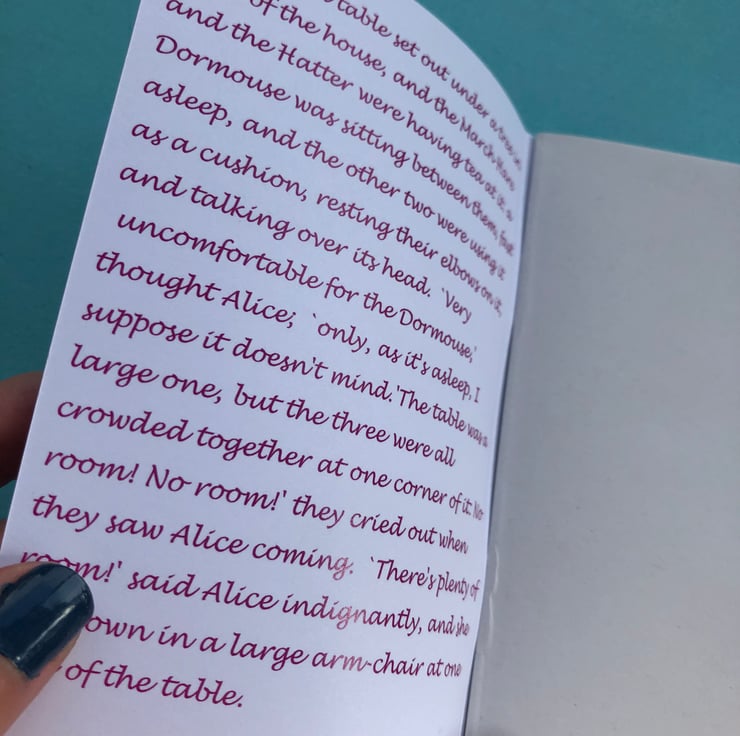 table set out under a tree in
of the house, and the March Hare
and the Hatter were having tea at it: a
Dormouse was sitting between them, fast
asleep, and the other two were using it
as a cushion, resting their elbows on it,
and talking over its head. `Very
uncomfortable for the Dormouse,'
thought Alice; `only, as it's asleep, I
suppose it doesn't mind.' The table was a
large one, but the three were all
crowded together at one corner of it: `No
room! No room!' they cried out when
they saw Alice coming. `There's plenty of
room!' said Alice indignantly, and she
own in a large arm-chair at one
of the table.